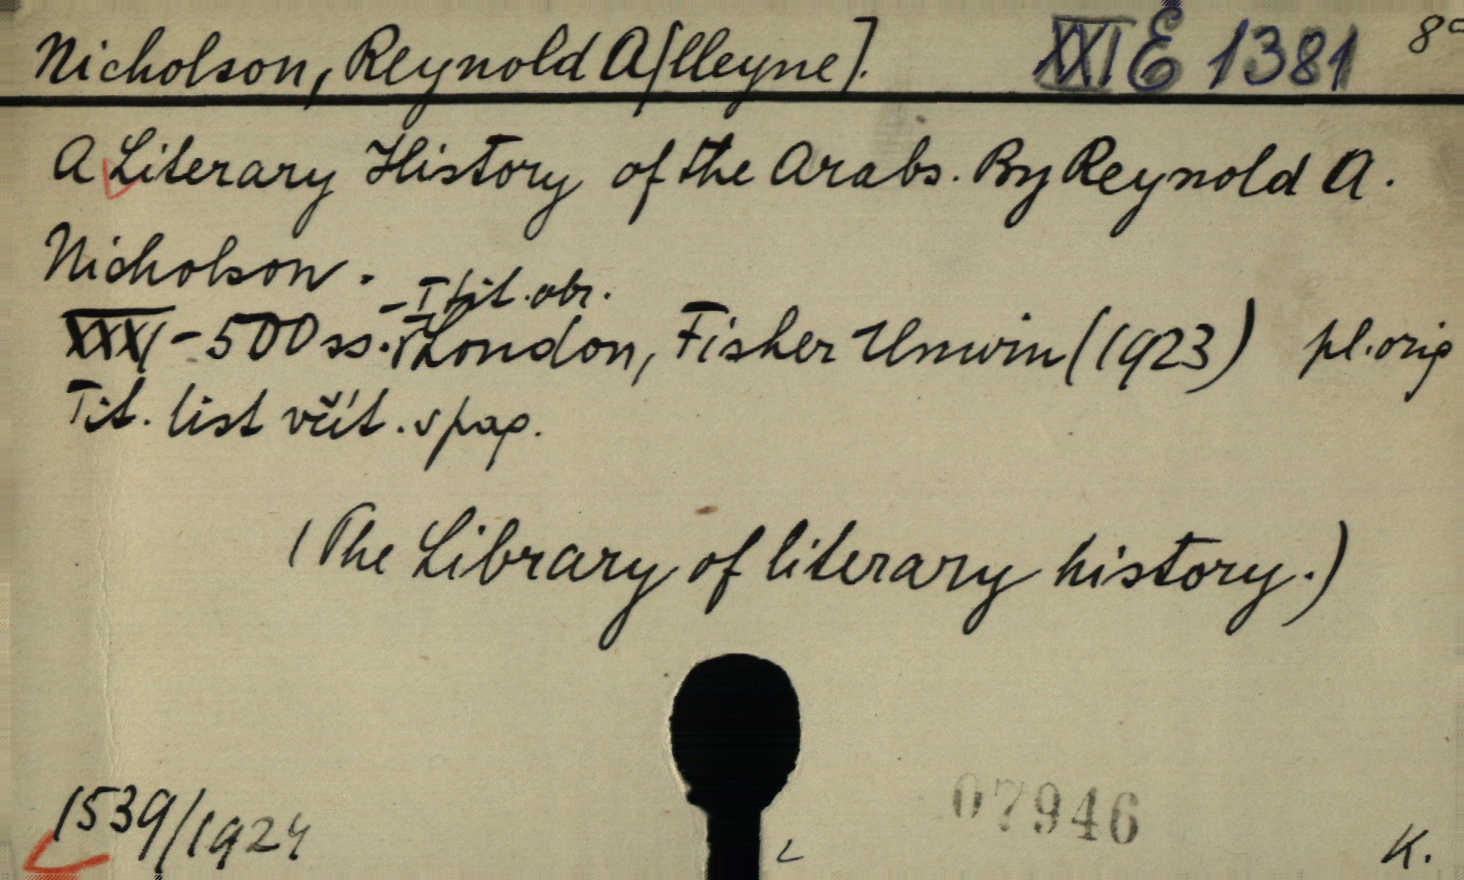 Nicholson, Reynold A[lleyne]. XXI E 1381 8°
A Literary History of the Arabs. By Reynold A.
Nicholson.
– I tit. obr.
XXXI – 500 ss. London, Fisher Unwin (1923) pl. orig
Tit. list včít. v pag.
(The Library of literary history.)
1539/1924
07946
K.